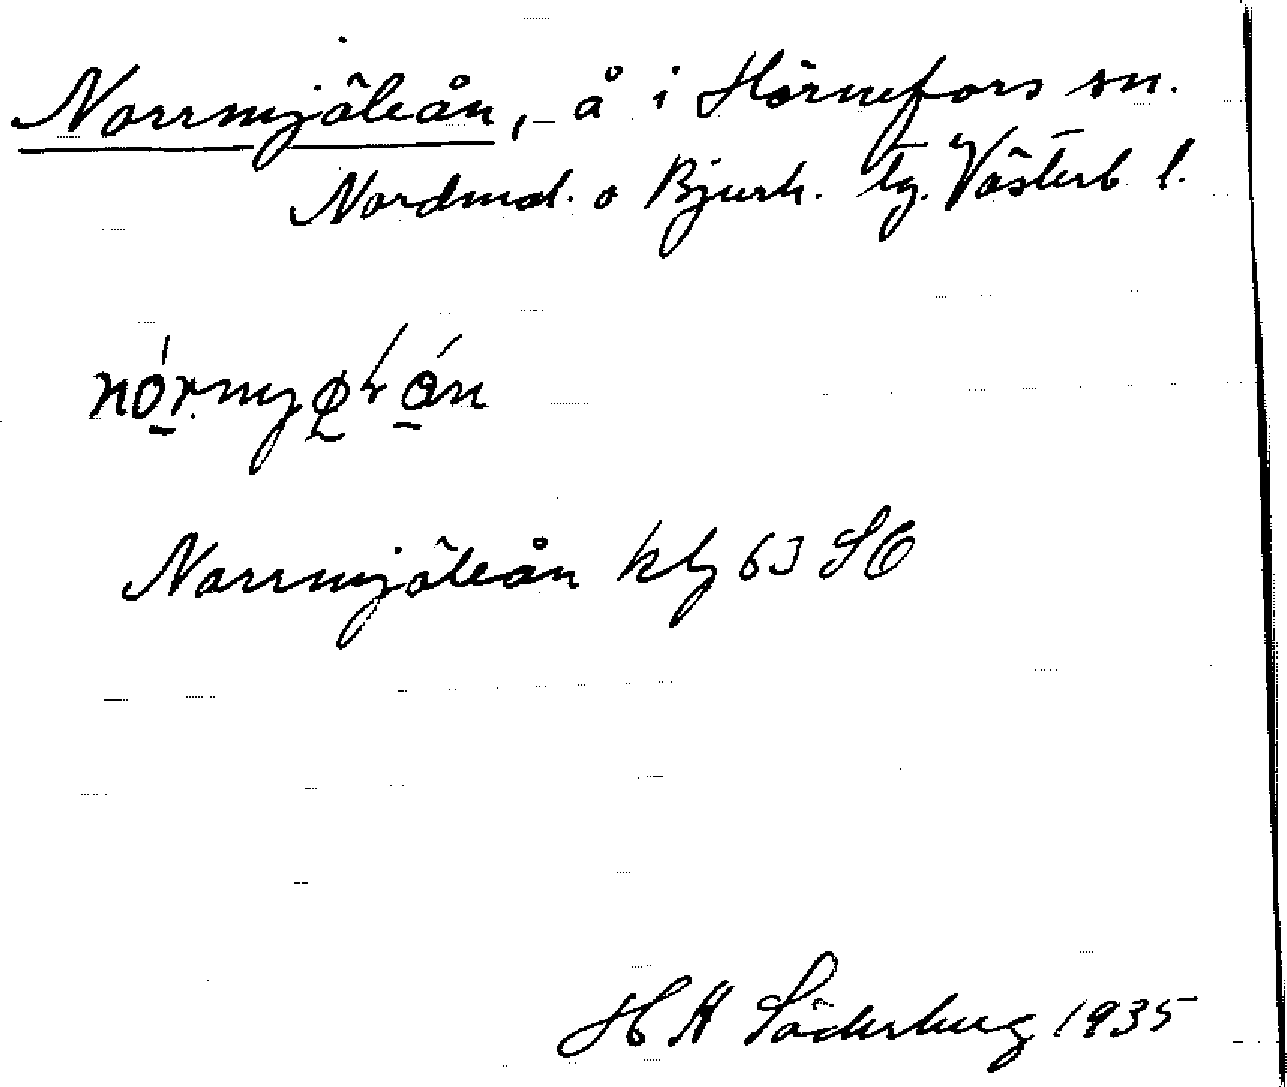 Norrmjöleån, å i Hörnefors sn.
Nordmal. o Bjurh. tg. Västerb l.
Norrmjöleån kbl 63 SO
H A Söderberg 1935